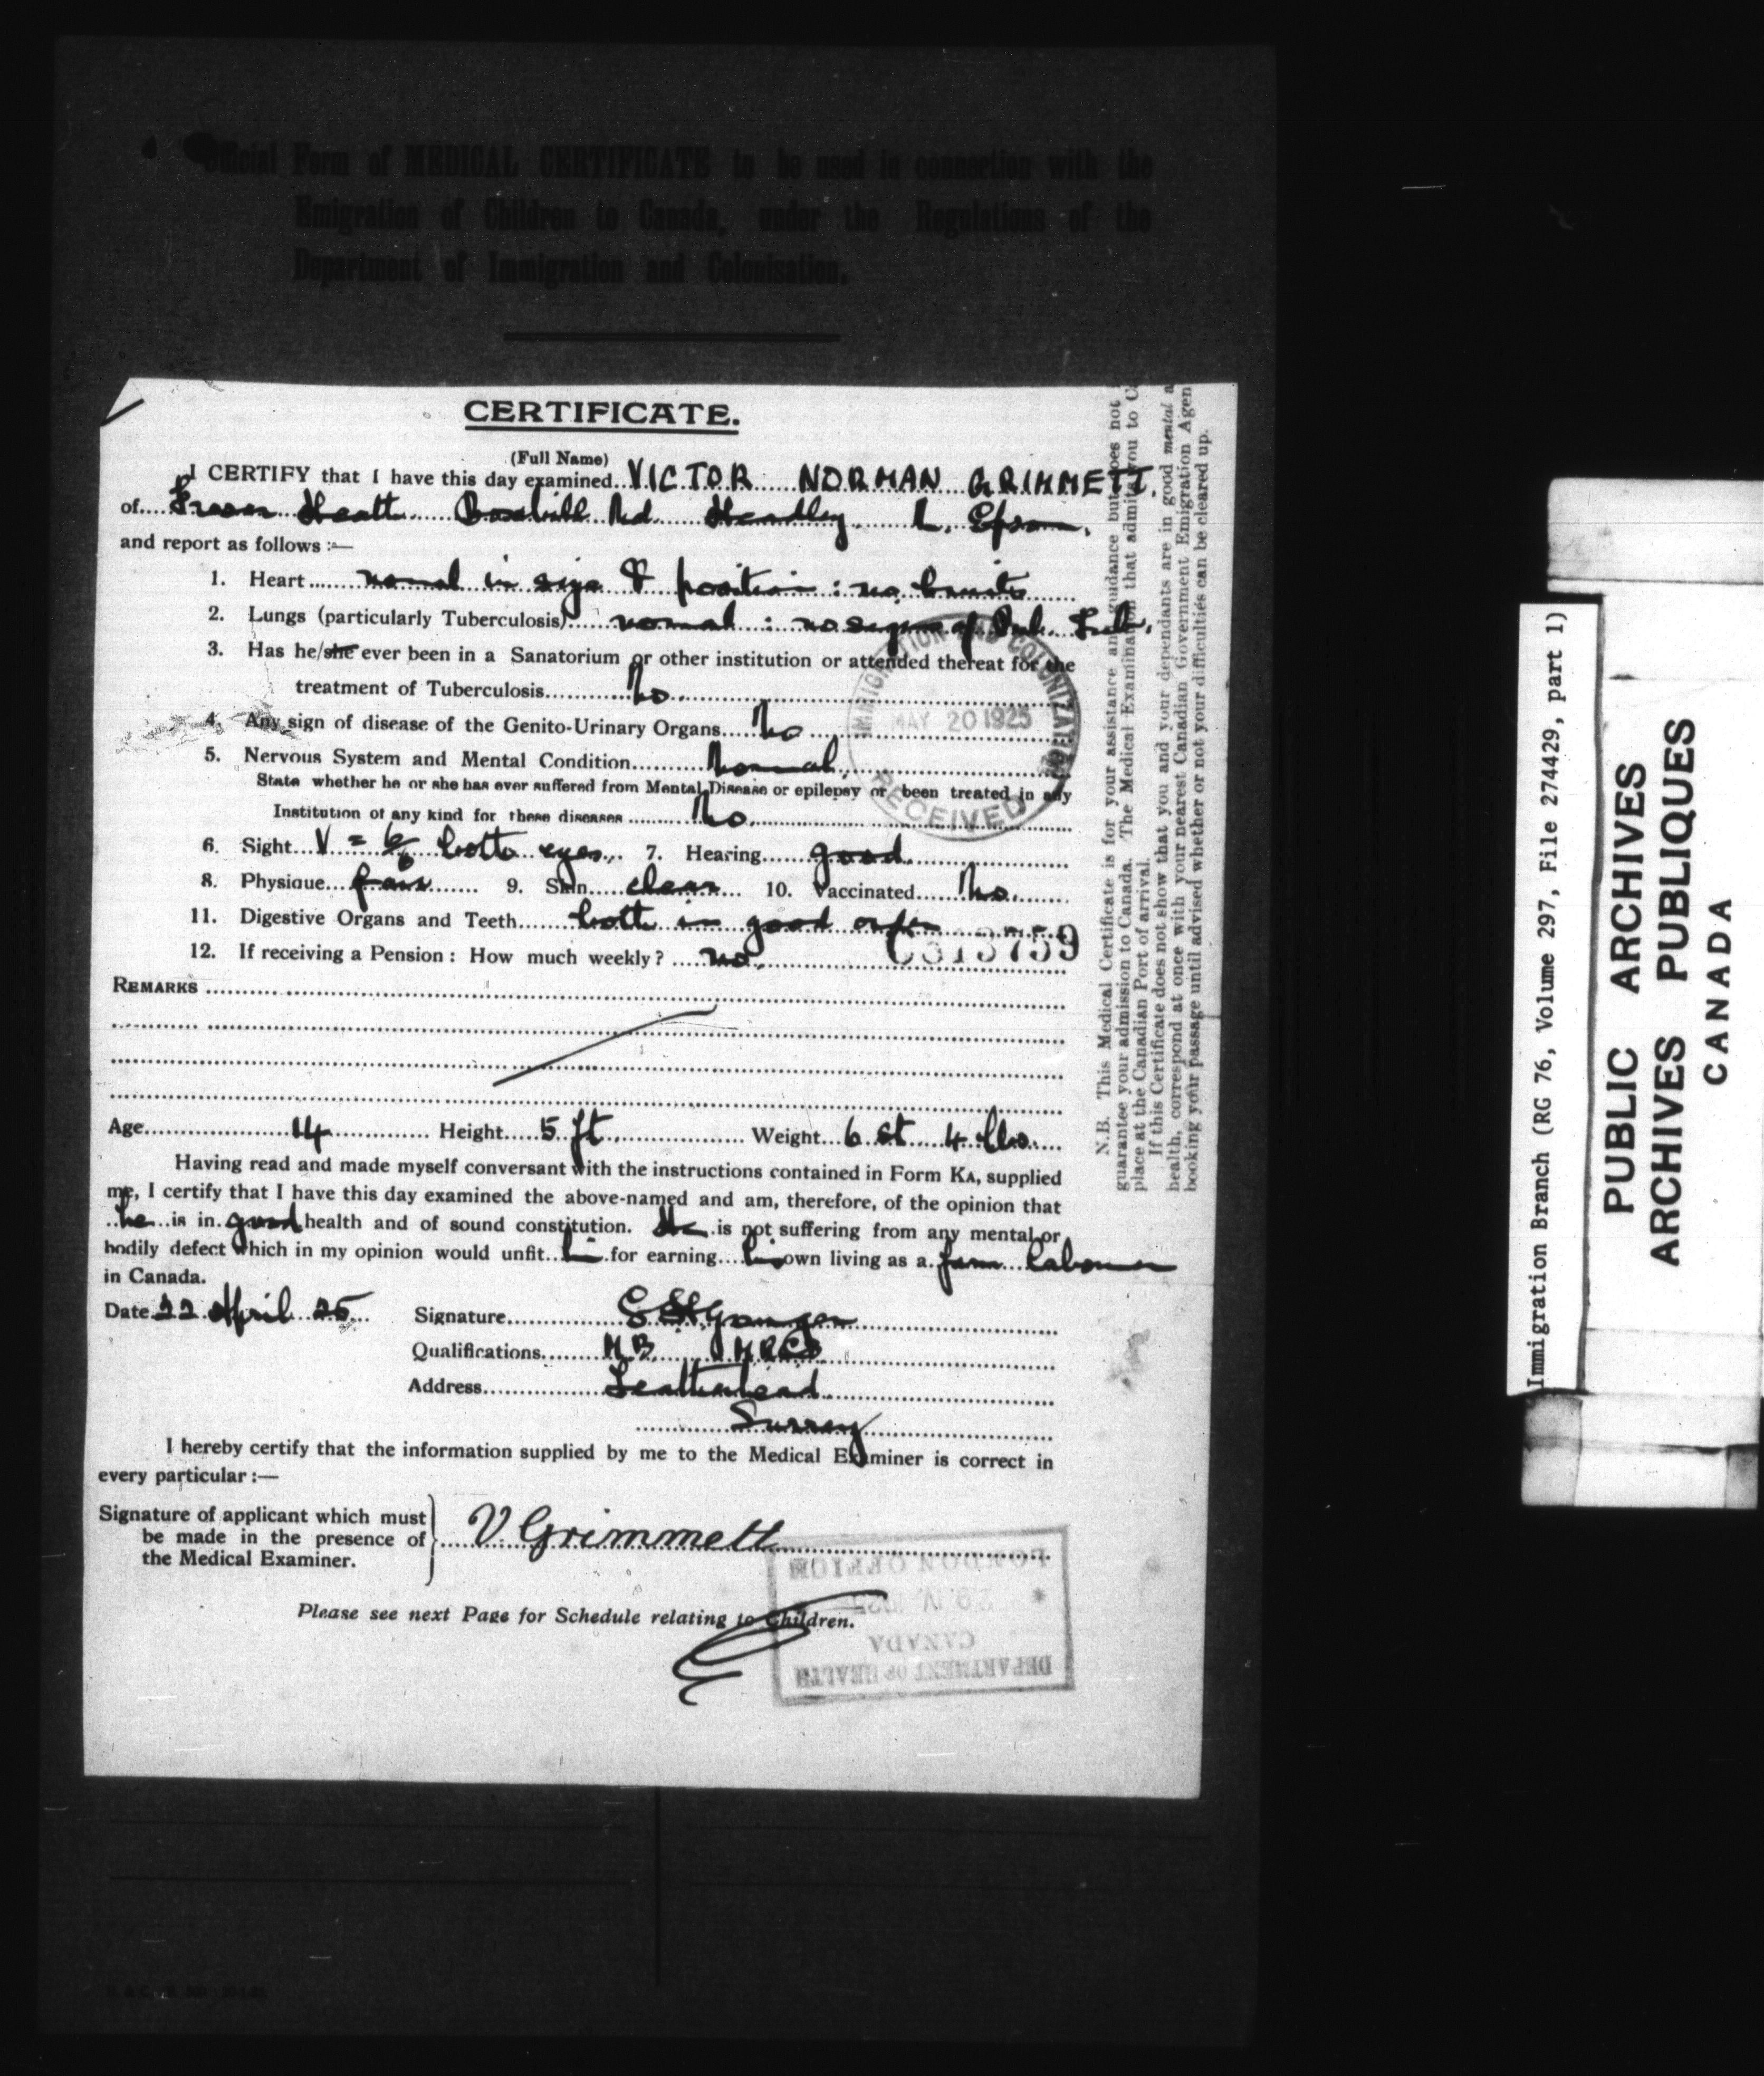 Official Form of MEDICAL CERTIFICATE to be used in connection with the
Emigration of Children to Canada, under the Regulations of the
Department of Immigration and Colonisation.
CERTIFICATE.
(Full Name)
I CERTIFY that I have this day examined VICTOR NORMAN GRIMMETT.
of Heath Boxhill Rd Headley Epsom.
and report as follows :—
1. Heart normal in size & position : no bruits
2. Lungs (particularly Tuberculosis) normal : no signs of Pul. Tub.
3. Has he/she ever been in a Sanatorium or other institution or attended thereat for the
treatment of Tuberculosis No.
4. Any sign of disease of the Genito-Urinary Organs No
5. Nervous System and Mental Condition Normal.
State whether he or she has ever suffered from Mental Disease or epilepsy or been treated in any
Institution of any kind for these diseases No.
6. Sight V = 6/6 both eyes. 7. Hearing good.
8. Physique fair 9. Skin clear 10. Vaccinated No.
11. Digestive Organs and Teeth both in good order
12. If receiving a Pension : How much weekly? no.
C313759
REMARKS
Age 14 Height 5 ft. Weight 6 st 4 lbs.
Having read and made myself conversant with the instructions contained in Form KA, supplied
me, I certify that I have this day examined the above-named and am, therefore, of the opinion that
he is in good health and of sound constitution. He is not suffering from any mental or
bodily defect which in my opinion would unfit him for earning his own living as a farm labourer
in Canada.
Date 22 April 25 Signature
Qualifications MB MRCS
Address Leatherhead
Surrey
I hereby certify that the information supplied by me to the Medical Examiner is correct in
every particular :—
Signature of applicant which must
be made in the presence of
the Medical Examiner.
V Grimmett
Please see next Page for Schedule relating to Children.
IMMIGRATION AND COLONIZATION
MAY 20 1925
RECEIVED
DEPARTMENT OF HEALTH
CANADA
IV 1925
LONDON OFFICE
N.B. This Medical Certificate is for your assistance and guidance but does not
guarantee your admission to Canada. The Medical Examination that admits you to
place at the Canadian Port of arrival.
If this Certificate does not show that you and your dependants are in good mental
health, correspond at once with your nearest Canadian Government Emigration
booking your passage until advised whether or not your difficulties can be cleared up.
Immigration Branch (RG 76, Volume 297, File 274429, part 1)
PUBLIC ARCHIVES
ARCHIVES PUBLIQUES
CANADA